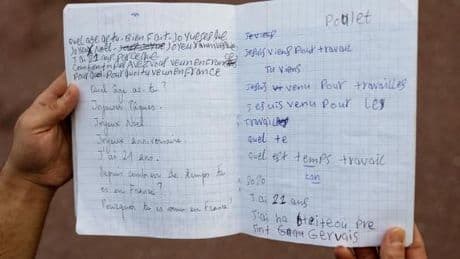 quel age as tu. Bien Fait. Joyeuse phe
Joyeux Noël. Joyeux anniversaire
J'ai 21 ans
Pour quoi tu veun en France
Quel âge as-tu ?
Joyeuses Pâques.
Joyeux Noël.
Joyeux anniversaire.
J'ai 21 ans.
Depuis combien de temps tu
es en France ?
Pourquoi tu es venu en France ?
Poulet
Je viens
Je suis viens pour travail
Tu viens
Je suis venu pour travailles
Je suis venu pour les
travail
quel te
quel est temps travail
con
2020
J'ai 21 ans
J'ai ha pre
Sint Gervais